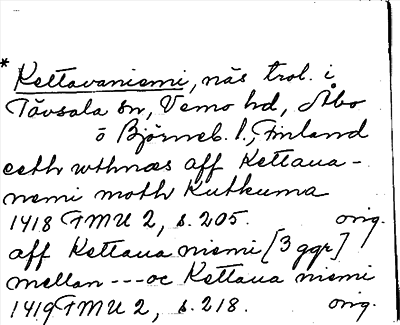 * Kettavaniemi, näs trol. i
Tövsala sn, Vemo hd, Åbo
ö Björneb. l., Finland
eeth wthnæs aff Kettaua-
nemi moth Kutkuma
1418 FMU 2, s. 205. orig.
aff Kettaua niemi [3 ggr]
mellan --- oc Kettaua niemi
1419 FMU 2, s. 218. orig.